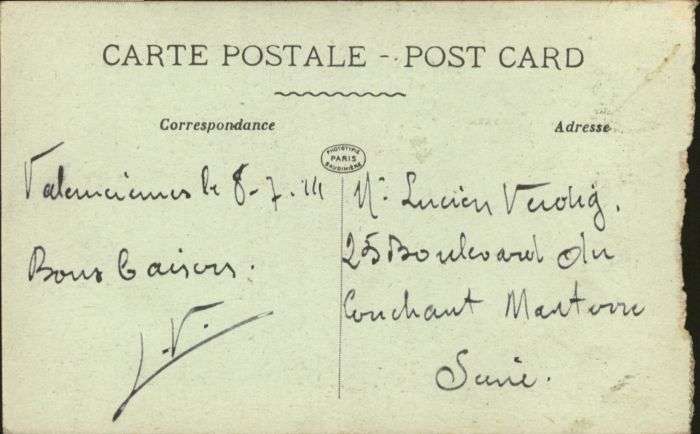 CARTE POSTALE - POST CARD
Correspondance
Adresse
PHOTOTYPIE
PARIS
BAUDINIÈRE
Valenciennes le 8-7.14
Bons baisers.
L.V.
Mr Lucien Verdig.
25 Boulevard du
Couchant Nanterre
Seine.